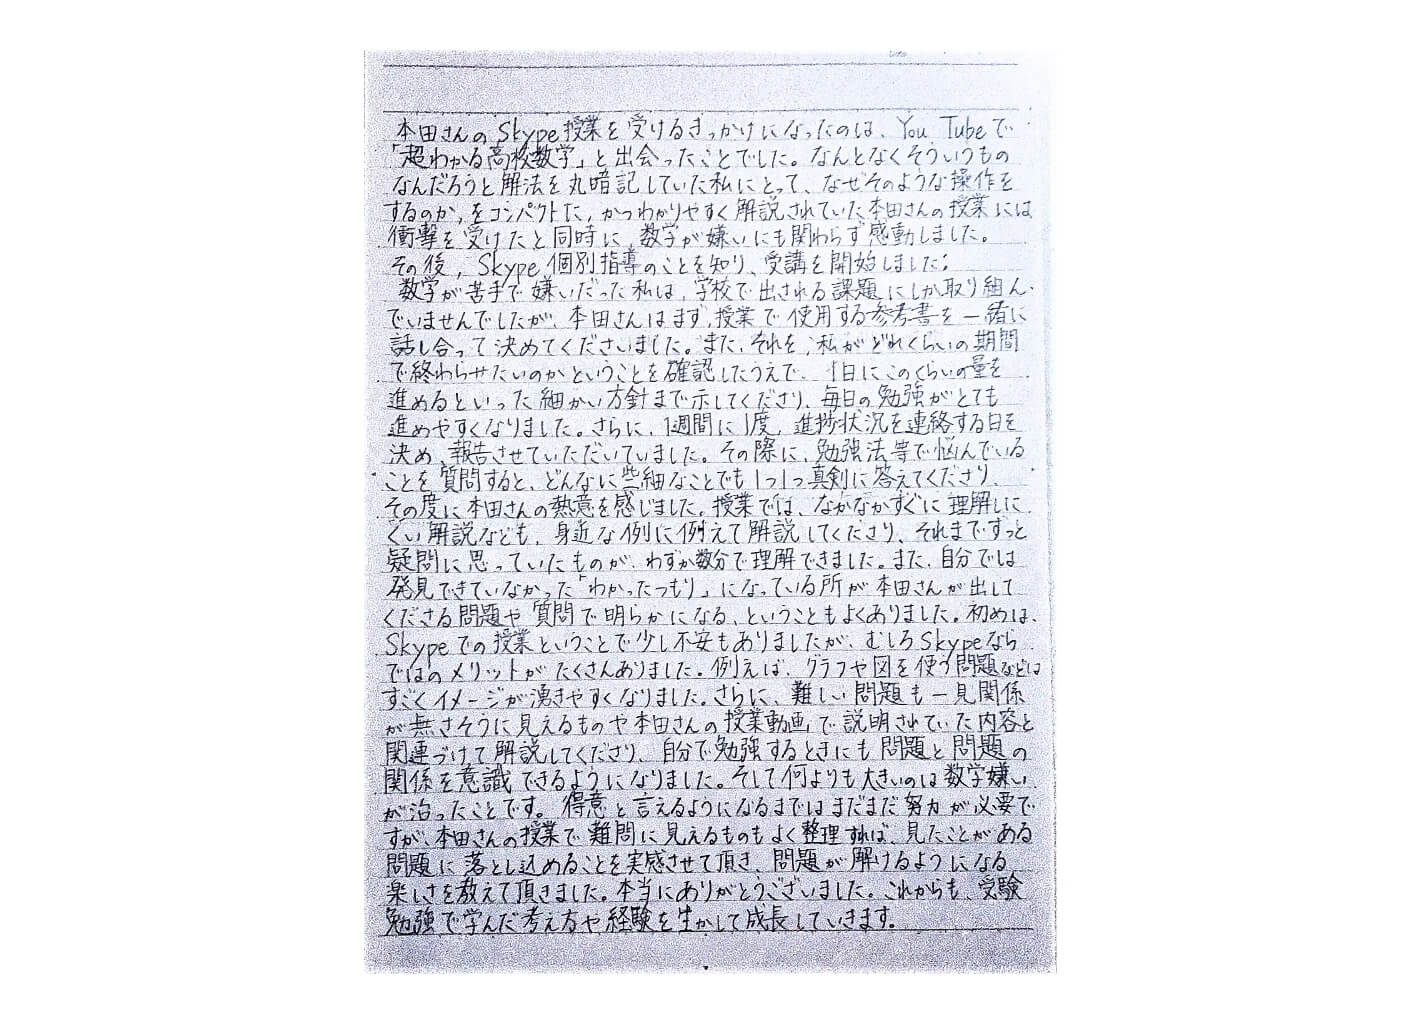 本田さんのSkype授業を受けるきっかけになったのは、You Tubeで
「超わかる高校数学」と出会ったことでした。なんとなくそういうもの
なんだろうと解法を丸暗記していた私にとって、なぜそのような操作を
するのか、をコンパクトに、かつわかりやすく解説されていた本田さんの授業には
衝撃を受けたと同時に、数学が嫌いにも関わらず感動しました。
その後、Skype個別指導のことを知り、受講を開始しました。
数学が苦手で嫌いだった私は、学校で出される課題にしか取り組ん
でいませんでしたが、本田さんはまず、授業で使用する参考書を一緒に
話し合って決めてくださいました。また、それを、私がどれくらいの期間
で終わらせたいのかということを確認したうえで、1日にこのくらいの量を
進めるといった細かい方針まで示してくださり、毎日の勉強がとても
進めやすくなりました。さらに、1週間に1度、進捗状況を連絡する日を
決め、報告させていただいていました。その際に、勉強法等で悩んでいる
ことを質問すると、どんなに些細なことでも1つ1つ真剣に答えてくださり、
その度に本田さんの熱意を感じました。授業では、なかなかすぐに理解しに
くい解説なども、身近な例に例えて解説してくださり、それまでずっと
疑問に思っていたものが、わずか数分で理解できました。また、自分では
発見できていなかった「わかったつもり」になっている所が本田さんが出して
くださる問題や質問で明らかになる、ということもよくありました。初めは、
Skypeでの授業ということで少し不安もありましたが、むしろSkypeなら
ではのメリットがたくさんありました。例えば、グラフや図を使う問題などは
すごくイメージが湧きやすくなりました。さらに、難しい問題も一見関係
が無さそうに見えるものや本田さんの授業動画で説明されていた内容と
関連づけて解説してくださり、自分で勉強するときにも問題と問題の
関係を意識できるようになりました。そして何よりも大きいのは数学嫌い
が治ったことです。得意と言えるようになるまではまだまだ努力が必要で
すが、本田さんの授業で難問に見えるものもよく整理すれば、見たことがある
問題に落とし込めることを実感させて頂き、問題が解けるようになる
楽しさを教えて頂きました。本当にありがとうございました。これからも、受験
勉強で学んだ考え方や経験を生かして成長していきます。